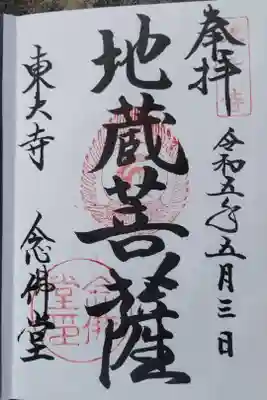 奉拝
令和五年五月三日
地蔵菩薩
東大寺
念佛堂